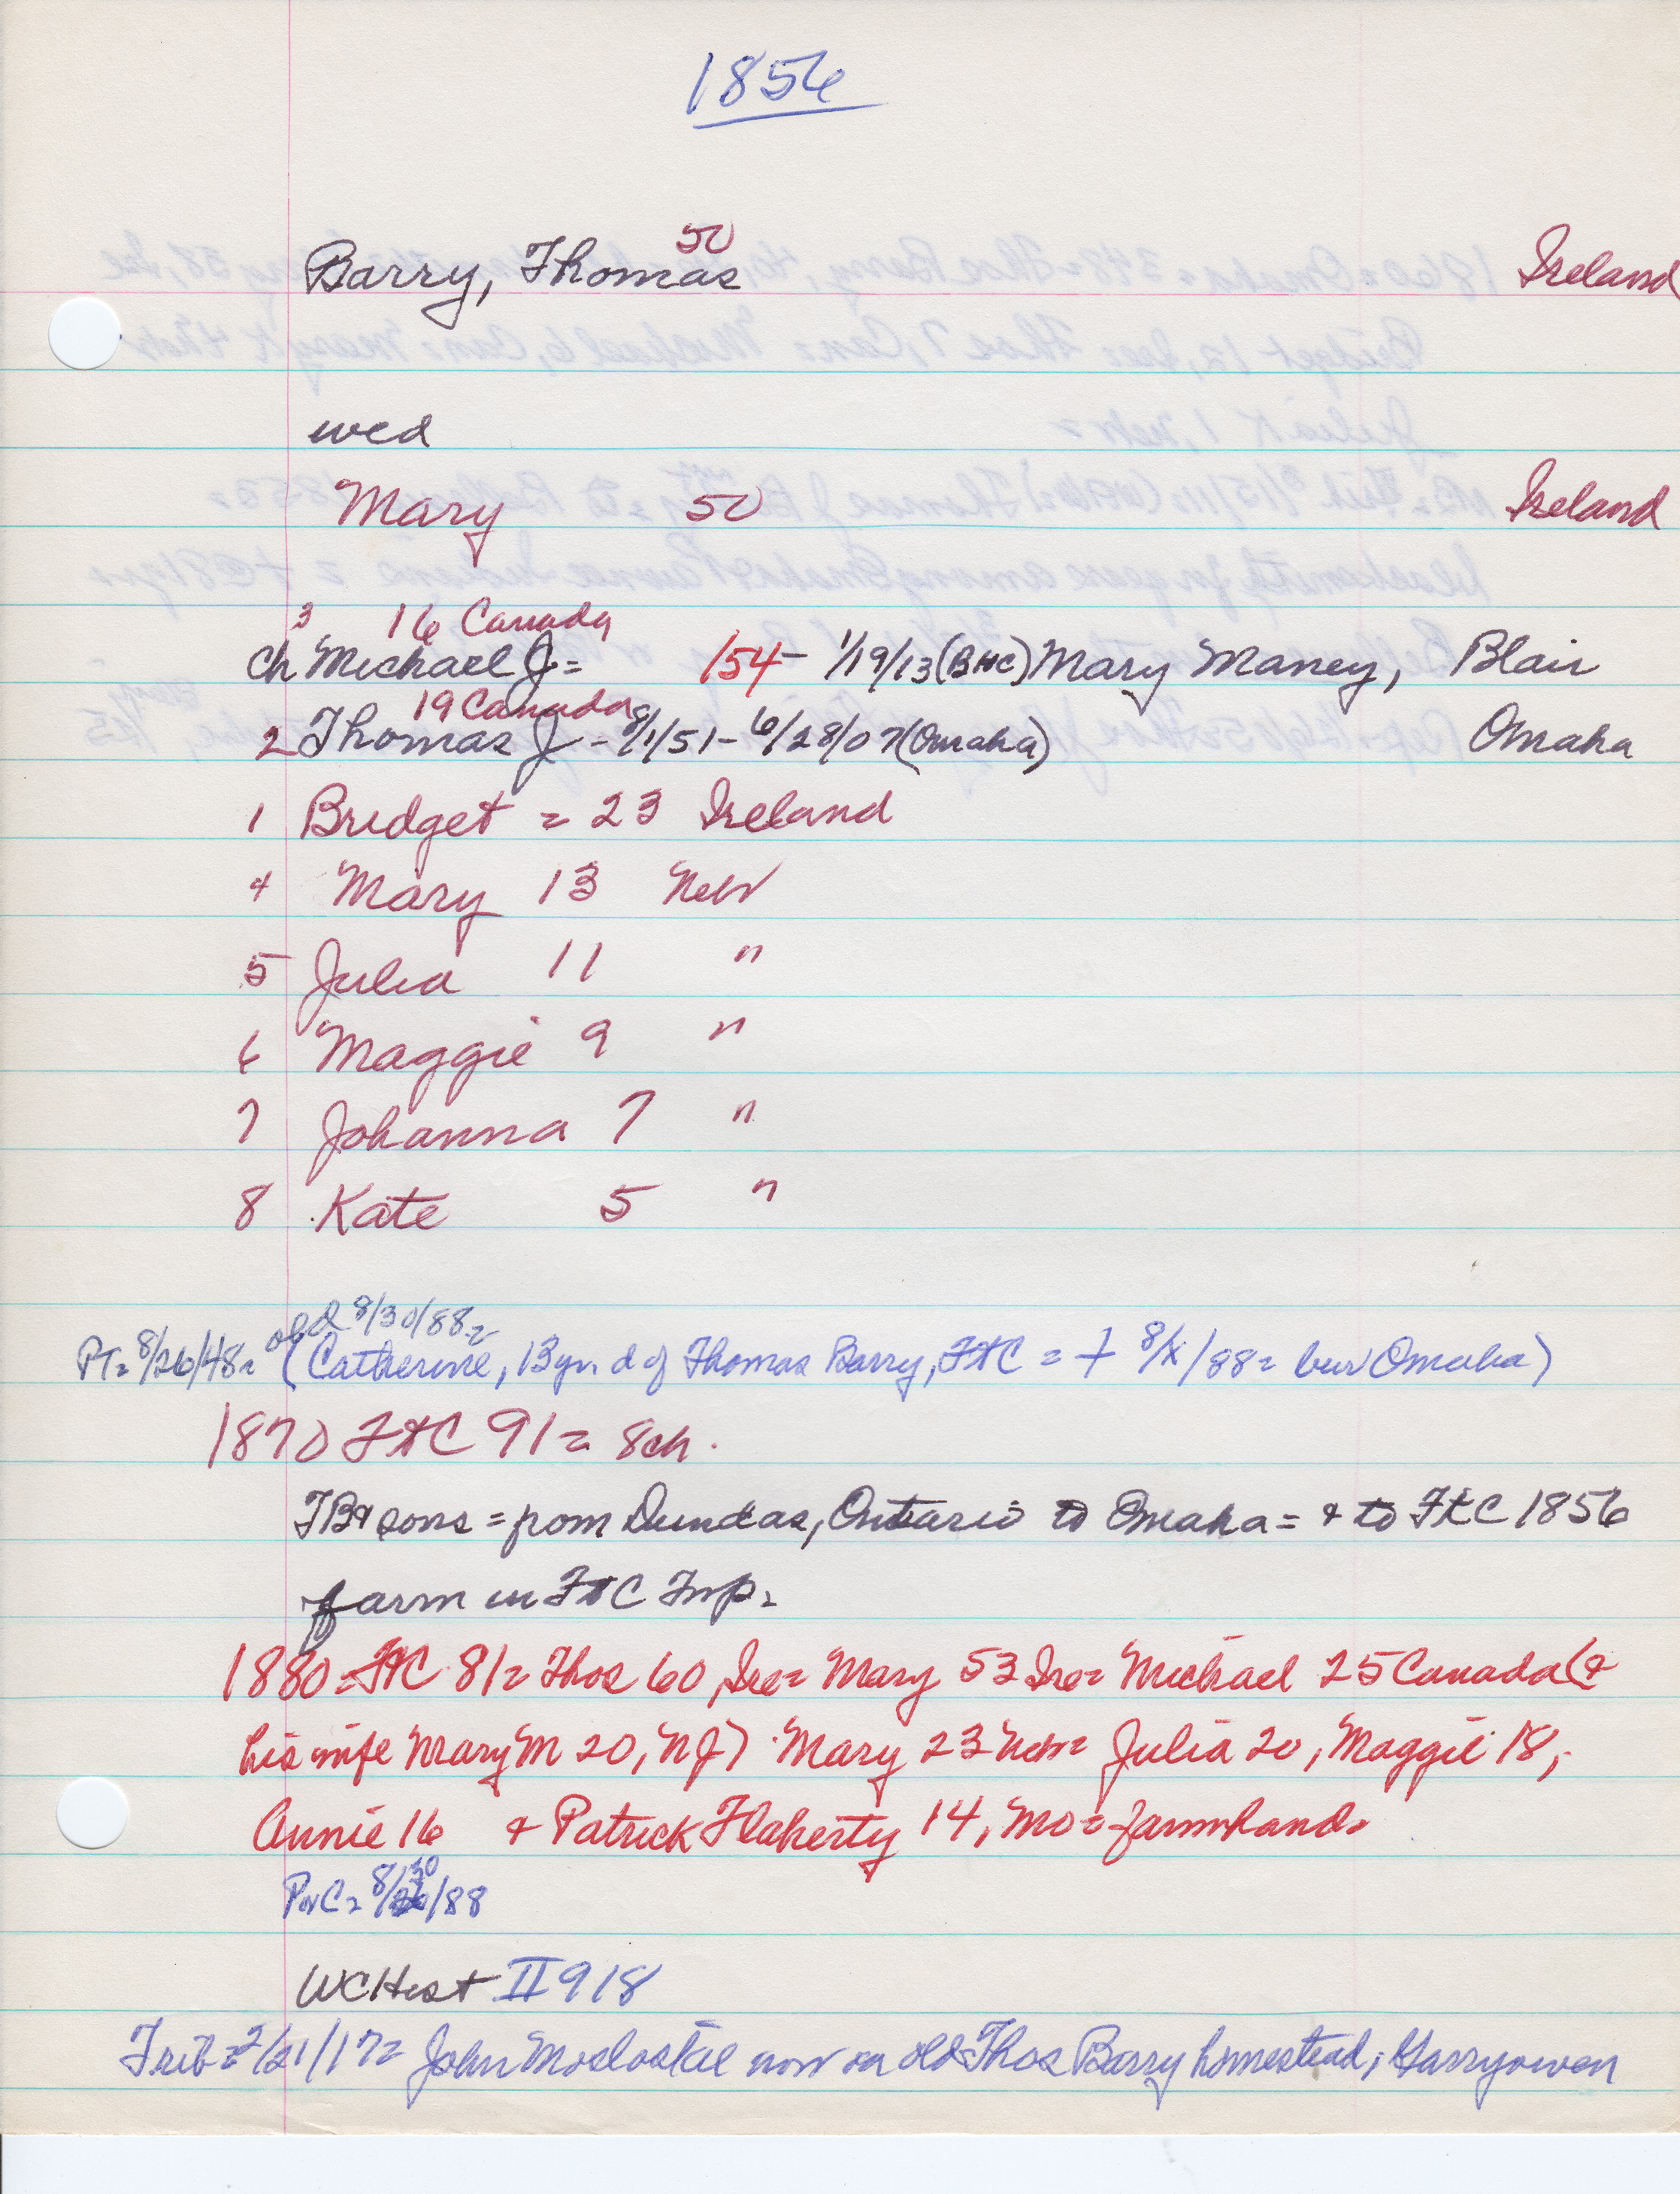 1856
50
Barry, Thomas Ireland
wed
Mary 50 Ireland
3 16 Canada
ch Michael J= /54- 1/19/13 (BHC) Mary Maney, Blair
19 Canada
2 Thomas J - 8/1/51- 6/28/07 (Omaha) Omaha
1 Bridget = 23 Ireland
4 Mary 13 Nebr
5 Julia 11 "
6 Maggie 9 "
7 Johanna 7 "
8 Kate 5 "
8/30/88=
PT= 8/26/48= (Catherine, 13 yr. d of Thomas Barry, FtC = + 8/x/88= bur Omaha)
1870 FtC 91= 8ch.
TB& sons = from Dundas, Ontario to Omaha= & to FtC 1856
farm in FtC Twp=
1880=FtC 81= Thos 60, Ire= Mary 53 Ire= Michael 25 Canada (&
his wife Mary M 20, NJ) Mary 23 Nebr= Julia 20, Maggie 18,
Annie 16 & Patrick Flaherty 14, Mo= farmhand=
30
/88
WCHist II 918
Trib= 2/21/17= John now on old Thos Barry homestead; Garryowen